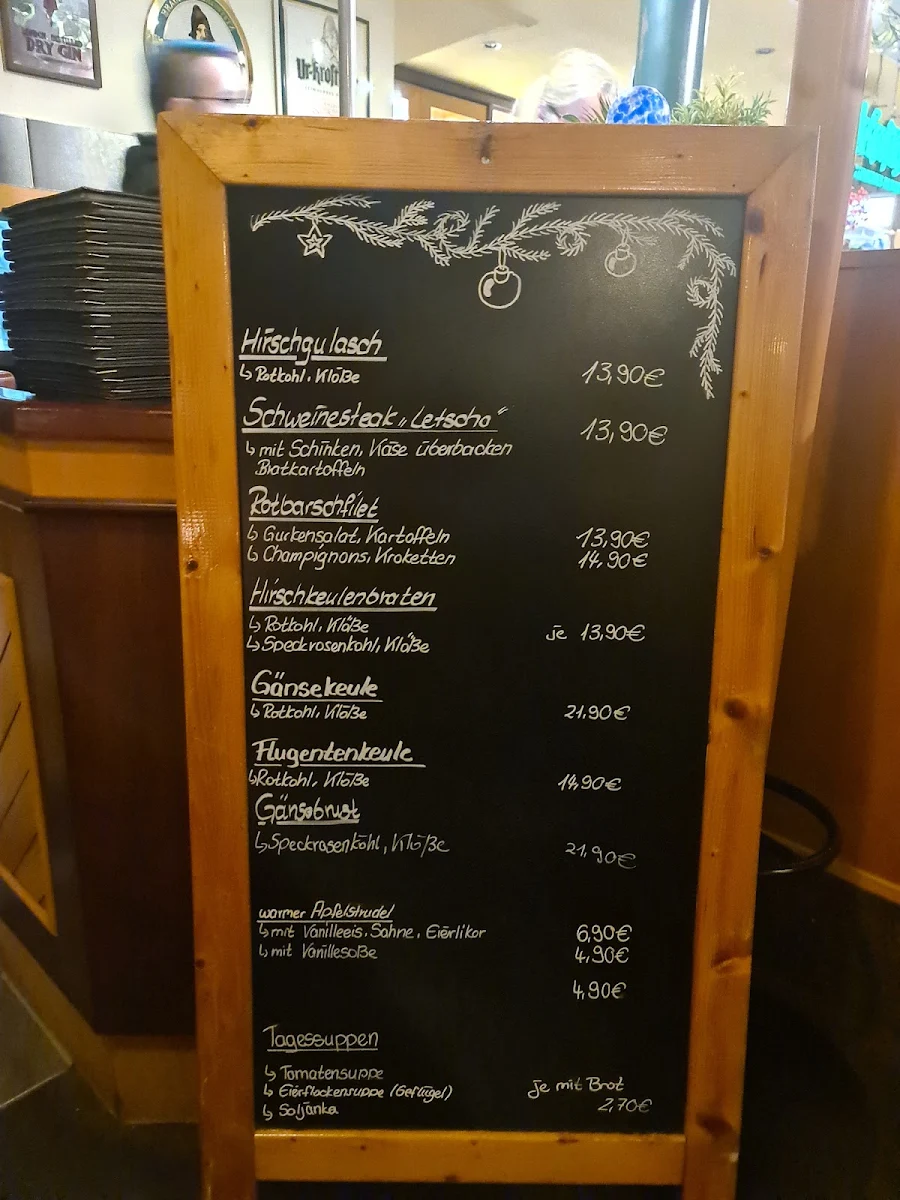 DRY GIN
Ur-Krost
Hirschgulasch
↳ Rotkohl, Klöße 13,90€
Schweinesteak „Letscho“ 13,90€
↳ mit Schinken, Käse überbacken
Bratkartoffeln
Rotbarschfilet
↳ Gurkensalat, Kartoffeln 13,90€
↳ Champignons, Kroketten 14,90€
Hirschkeulenbraten
↳ Rotkohl, Klöße je 13,90€
↳ Speckrosenkohl, Klöße
Gänsekeule
↳ Rotkohl, Klöße 21,90€
Flugentenkeule
↳ Rotkohl, Klöße 14,90€
Gänsebrust
↳ Speckrosenkohl, Klöße 21,90€
warmer Apfelstrudel
↳ mit Vanilleeis, Sahne, Eierlikör 6,90€
↳ mit Vanillesoße 4,90€
4,90€
Tagessuppen
↳ Tomatensuppe
↳ Eierflockensuppe (Geflügel) je mit Brot
↳ Soljanka 2,70€